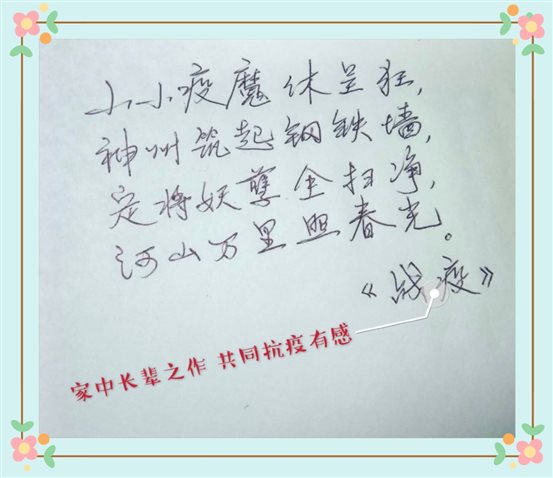 小小疫魔休呈狂,
神州筑起钢铁墙,
定将妖孽全扫净,
河山万里照春光。
《战疫》
家中长辈之作 共同抗疫有感